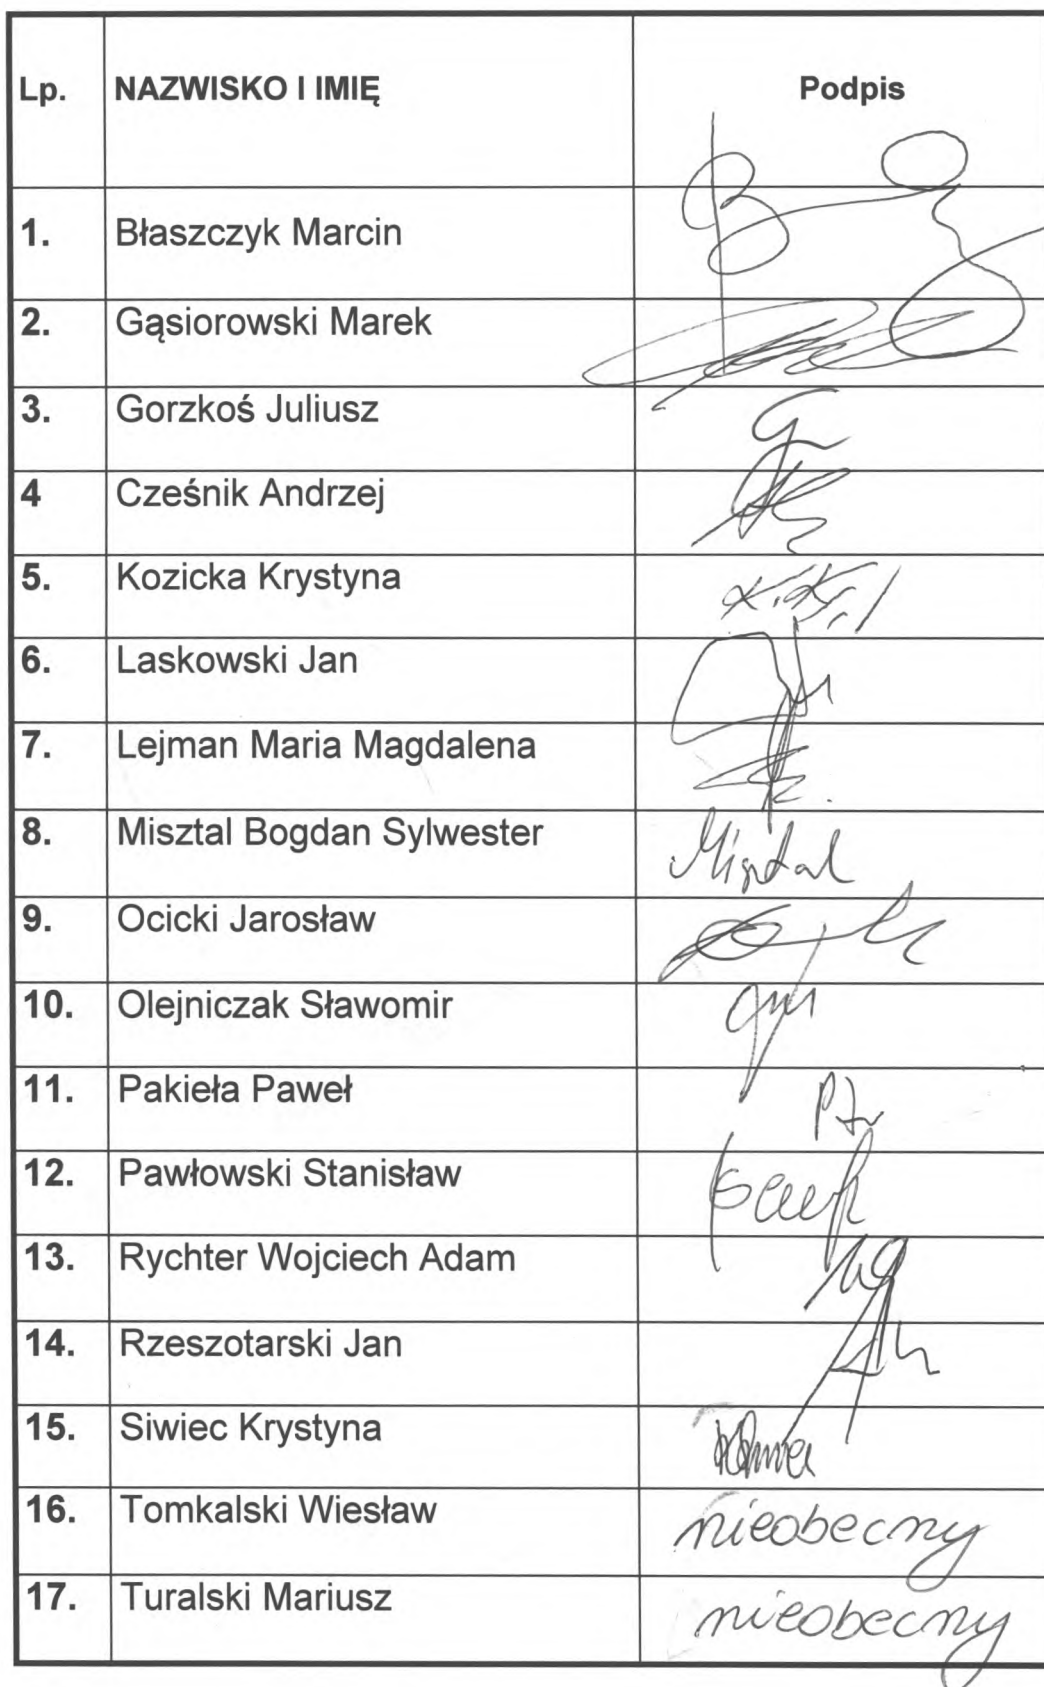 Lp. NAZWISKO I IMIĘ Podpis
1. Błaszczyk Marcin
2. Gąsiorowski Marek
3. Gorzkoś Juliusz
4 Cześnik Andrzej
5. Kozicka Krystyna
6. Laskowski Jan
7. Lejman Maria Magdalena
8. Misztal Bogdan Sylwester Misztal
9. Ocicki Jarosław
10. Olejniczak Sławomir
11. Pakieła Paweł
12. Pawłowski Stanisław
13. Rychter Wojciech Adam
14. Rzeszotarski Jan
15. Siwiec Krystyna
16. Tomkalski Wiesław nieobecny
17. Turalski Mariusz nieobecny